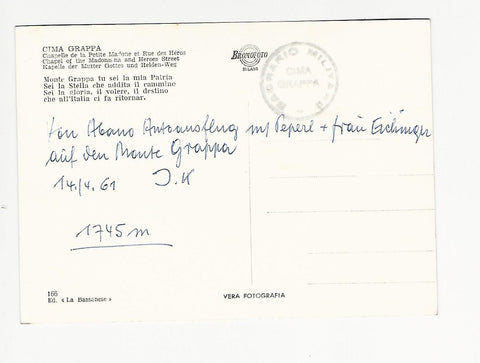 CIMA GRAPPA
Chapelle de la Petite Madone et Rue des Héros
Chapel of the Madonna and Heroes Street
Kapelle der Mutter Gottes und Helden-Weg
Monte Grappa tu sei la mia Patria
Sei la Stella che addita il cammino
Sei la gloria, il volere, il destino
che all'Italia ci fa ritornar.
BROMOFOTO
MILANO
SACRARIO MILITARE
CIMA
GRAPPA
Von Abano Autoausflug m/ Peperl + Frau Eichinger
auf den Monte Grappa
14./4. 61 J. K
1745 m
166
Ed. « La Bassanese »
VERA FOTOGRAFIA